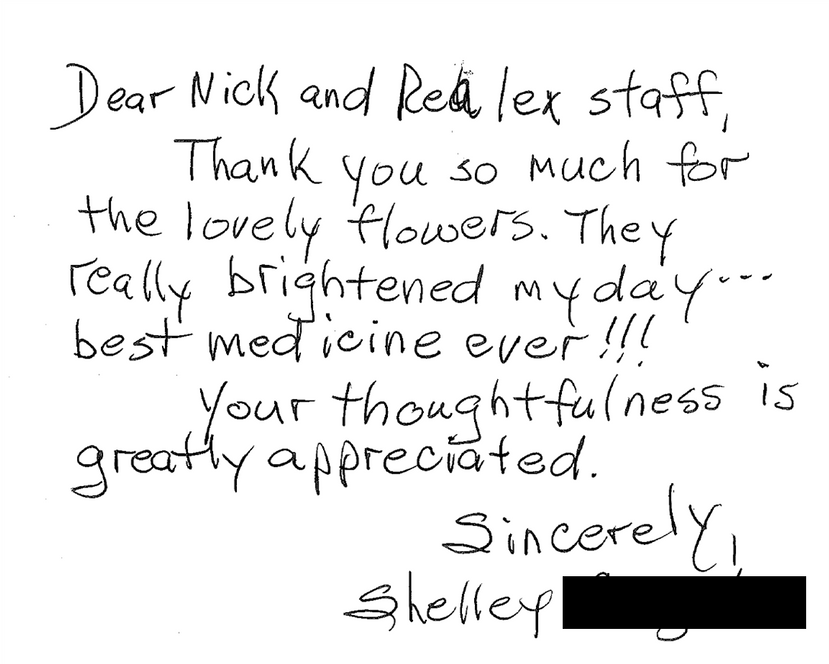 Dear Nick and Realex staff,
Thank you so much for
the lovely flowers. They
really brightened my day...
best medicine ever!!!
Your thoughtfulness is
greatly appreciated.
Sincerely,
Shelley